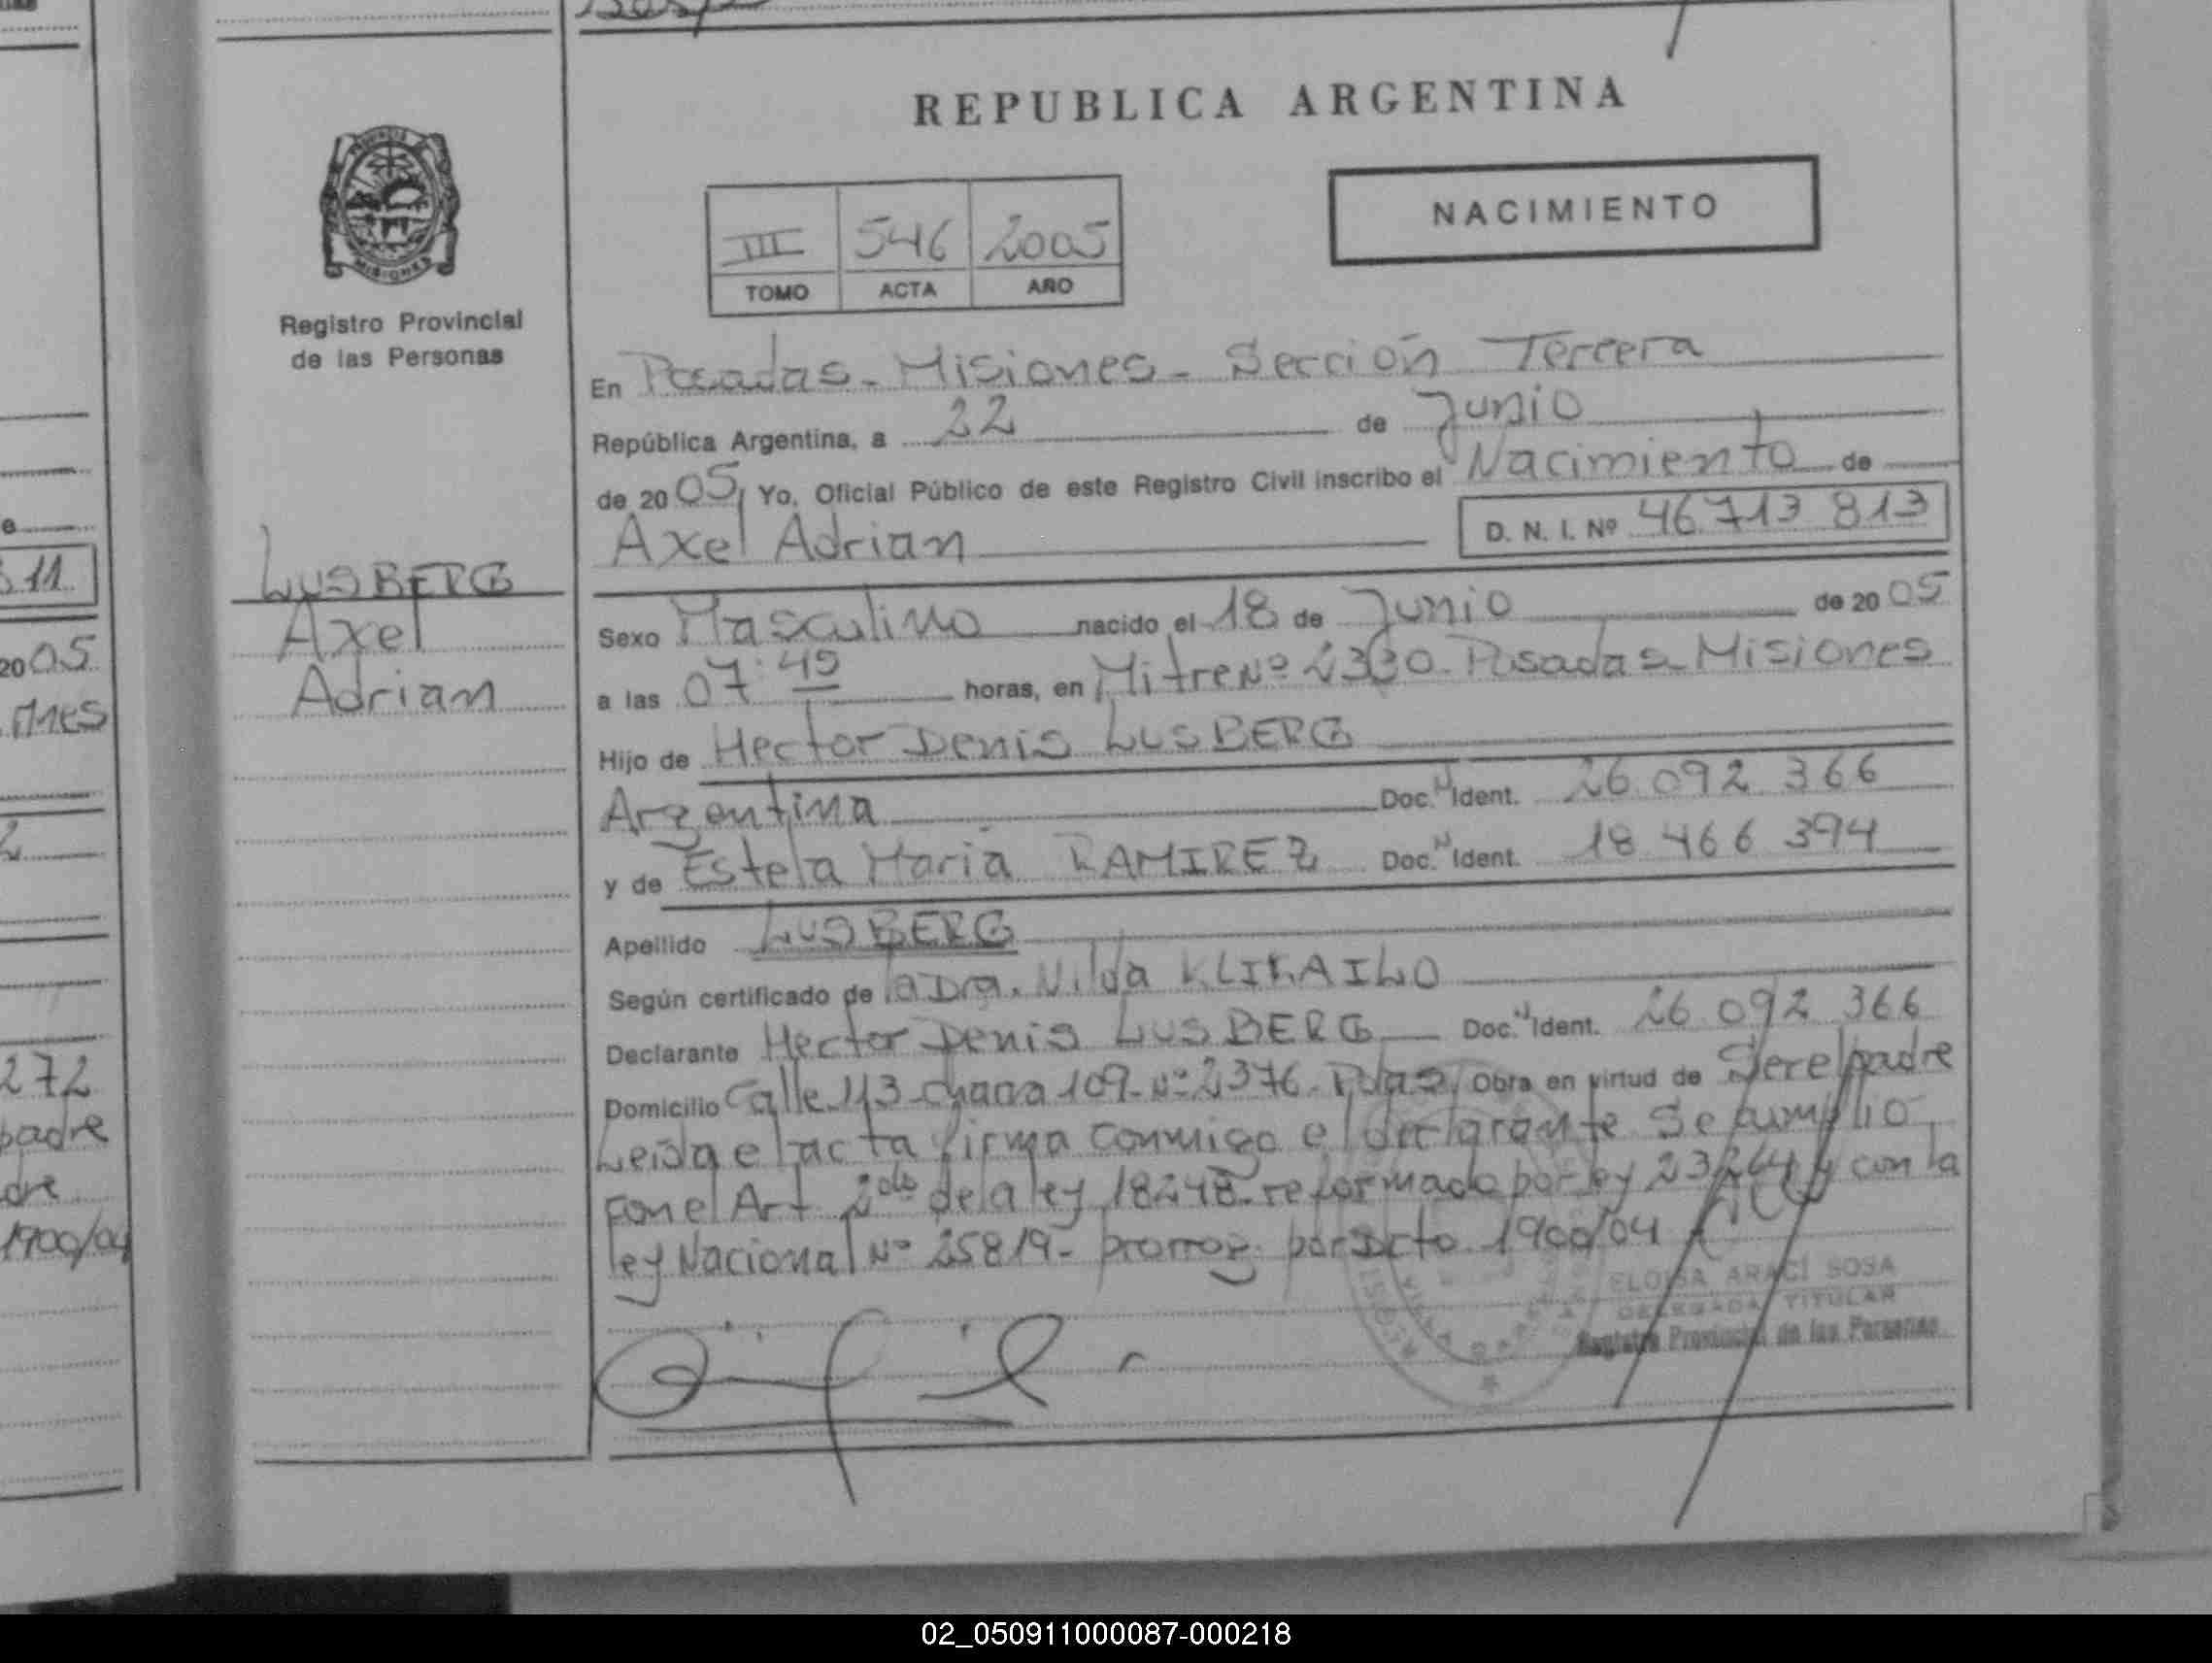 REPUBLICA ARGENTINA
NACIMIENTO
III 546 2005
TOMO ACTA AÑO
PROVINCIA DE MISIONES
Registro Provincial
de las Personas
LUSBERG
Axel
Adrian
En Posadas - Misiones - Sección Tercera
República Argentina, a 22 de Junio
de 2005, Yo, Oficial Público de este Registro Civil inscribo el Nacimiento de
Axel Adrian D. N. I. Nº 46.713 813
Sexo Masculino nacido el 18 de Junio de 2005
a las 07:45 horas, en Mitre Nº 2330 - Posadas - Misiones
Hijo de Hector Denis LUSBERG
Argentina Doc. N Ident. 26.092 366
y de Estela Maria RAMIREZ Doc. N Ident. 18 466 394
Apellido LUSBERG
Según certificado de la Dra. Nilda KLIKAILO
Declarante Hector Denis LUSBERG Doc. N Ident. 26.092 366
Domicilio Calle 113 - chacra 109 - Nº 2376 - Pdas. Obra en virtud de Ser el padre
Leida el acta firma conmigo el declarante Se cumplió
con el Art 2do de la ley 18248 - reformado por ley 23264 y con la
ley Nacional Nº 25819 - prorrog. por Dcto 1900/04
ELOISA ARACÍ SOSA
DELEGADA TITULAR
Registro Provincial de las Personas
11
2005
nes
272
padre
dre
1900/04
02_050911000087-000218